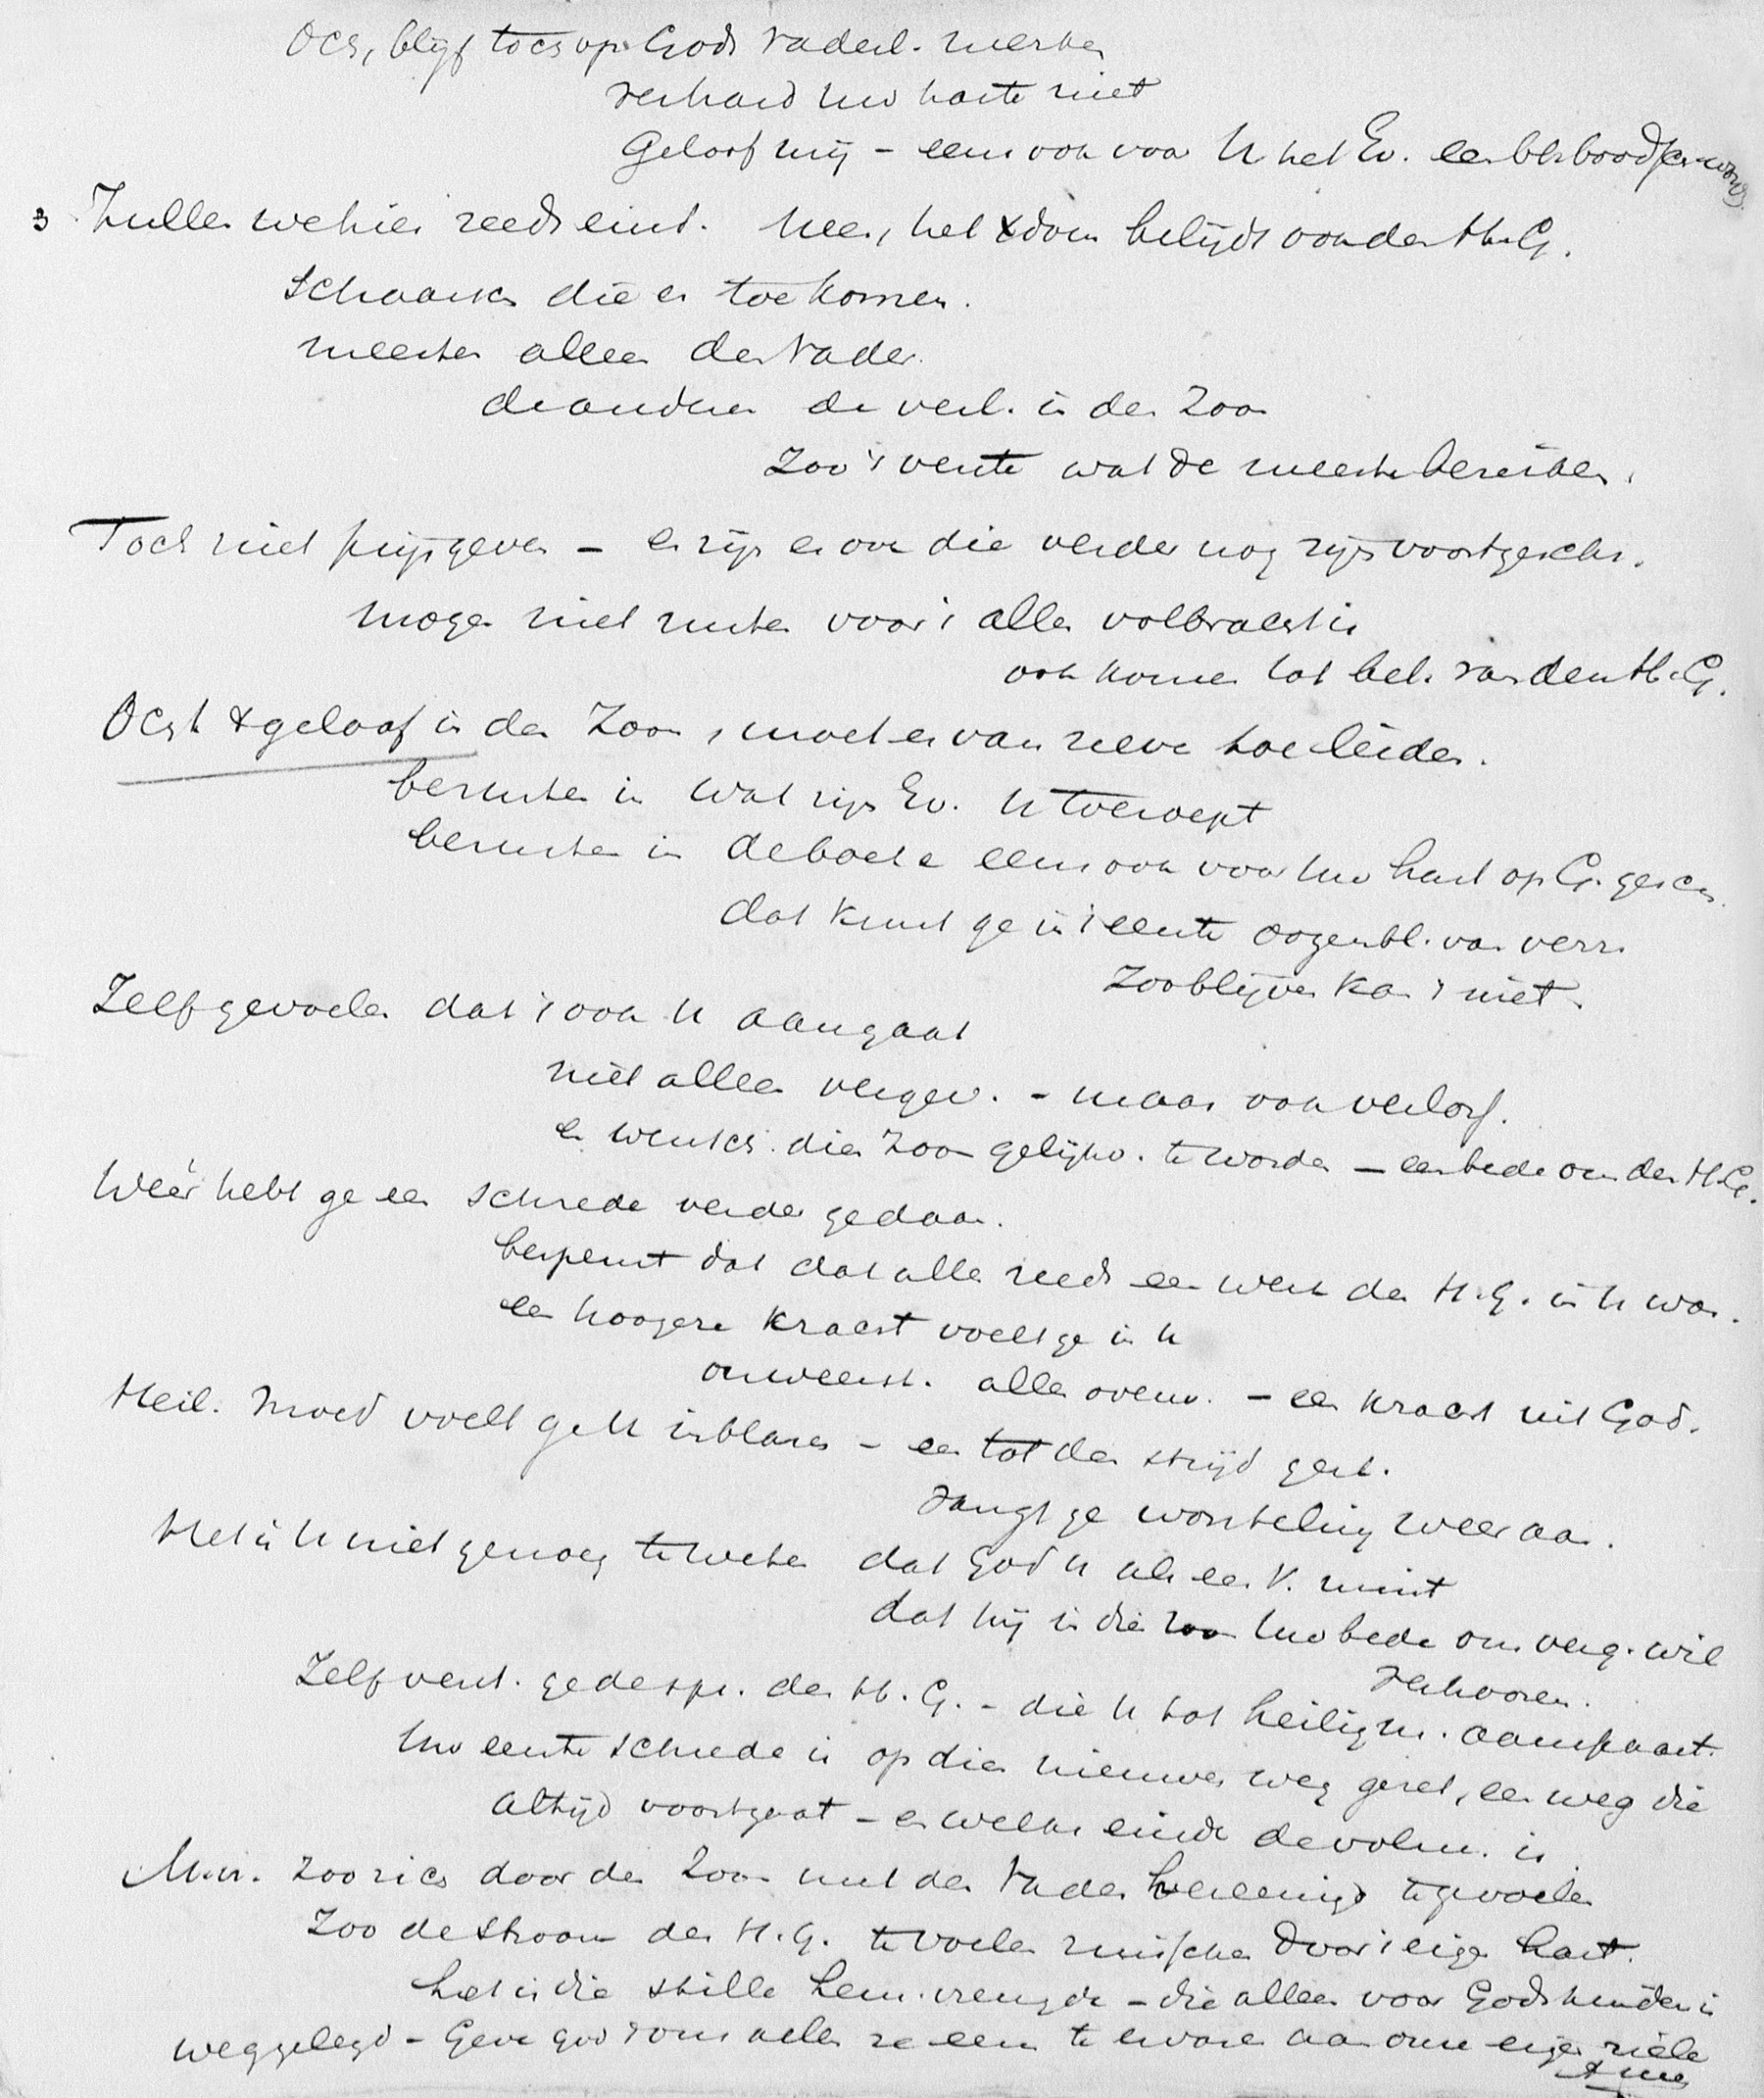 Och, blijf toch op Gods vaderl. merken
verhard uw harte niet
Geloof mij - eens ook voor U het Ev. een blijboodsch. word
3 Zullen we hier reeds eind. Neen, het xdom belijdt ook den H. G.
Schaarsch die er toe komen.
meesten alleen den Vader.
de anderen de verl. in den Zoon
Zoo 't verste wat de meeste bereiken.
Toch niet prijsgeven - er zijn er ook die verder nog zijn voortgeschr.
mogen niet rusten voor 't alles volbracht is
ook komen tot bel. van den H. G.
Och 't xgeloof in den Zoon, moet er van zelve toe leiden.
berusten in wat zijn Ev. U toeroept
berusten in de boete eens ook voor uw hart op G. gesch.
dat kunt ge in 't eerste oogenbl. van verr.
Zoo blijven kan 't niet.
Zelf gevoelen dat 't ook U aangaat
niet alleen vergev. - maar ook verloss.
en wensch. dien Zoon gelijkv. te worden - een bede om den H. G.
Wéér hebt ge een schrede verder gedaan.
bespeurt dat dat alles reeds een werk des H. G. in U was.
een hoogere kracht voelt ge in U
onweerst. alles overw. - een kracht uit God.
Heil. moed voelt ge U inblazen - en tot den strijd gest.
Vangt ge worsteling weer aan.
Het is U niet genoeg te weten dat God U als een V. mint
dat hij in die Zoon Uw bede om verg. wil
verhooren.
Zelf verst. ge de spr. des H. G. - die U tot heiligm. aanspoort.
Uw eerste schrede is op dien nieuwen weg gezet, een weg die
altijd voortgaat - en welks einde de volm. is.
M. vr. zoo zich door den Zoon met den Vader vereenigd te gevoelen
Zoo de stroom des H. G. te voelen ruischen door 't eigen hart.
het is die stille hem. vreugde - die alleen voor Gods kinderen is
weggelegd - Geve God 't ons allen ze eens te ervaren aan onze eigen ziele
Amen